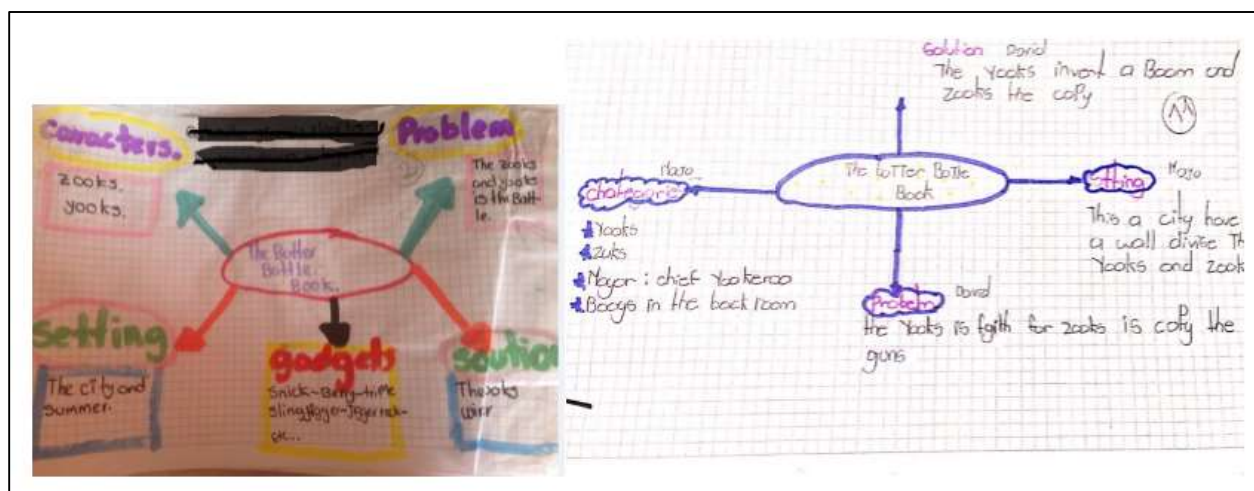 Caracters.
zooks.
yooks.
Problem
The zooks
and yooks
is the Batt-
le.
The Botter
Battle.
Book.
setting
The city and
summer.
gadgets
snick-Berry-triple
slingjigger-Jigger rock-
etc...
soution
The
Solution David
The Yooks invent a Boom and
zooks the copy
Majo
chategories
Yooks
Zuks
Mayor: chief Yookeroo
Booys in the back room
The Butter Botle
Book
Majo
This a city have
a wall divise Th
Yooks and zook
Probelm David
the Yooks is fgith for zooks is copy the
guns